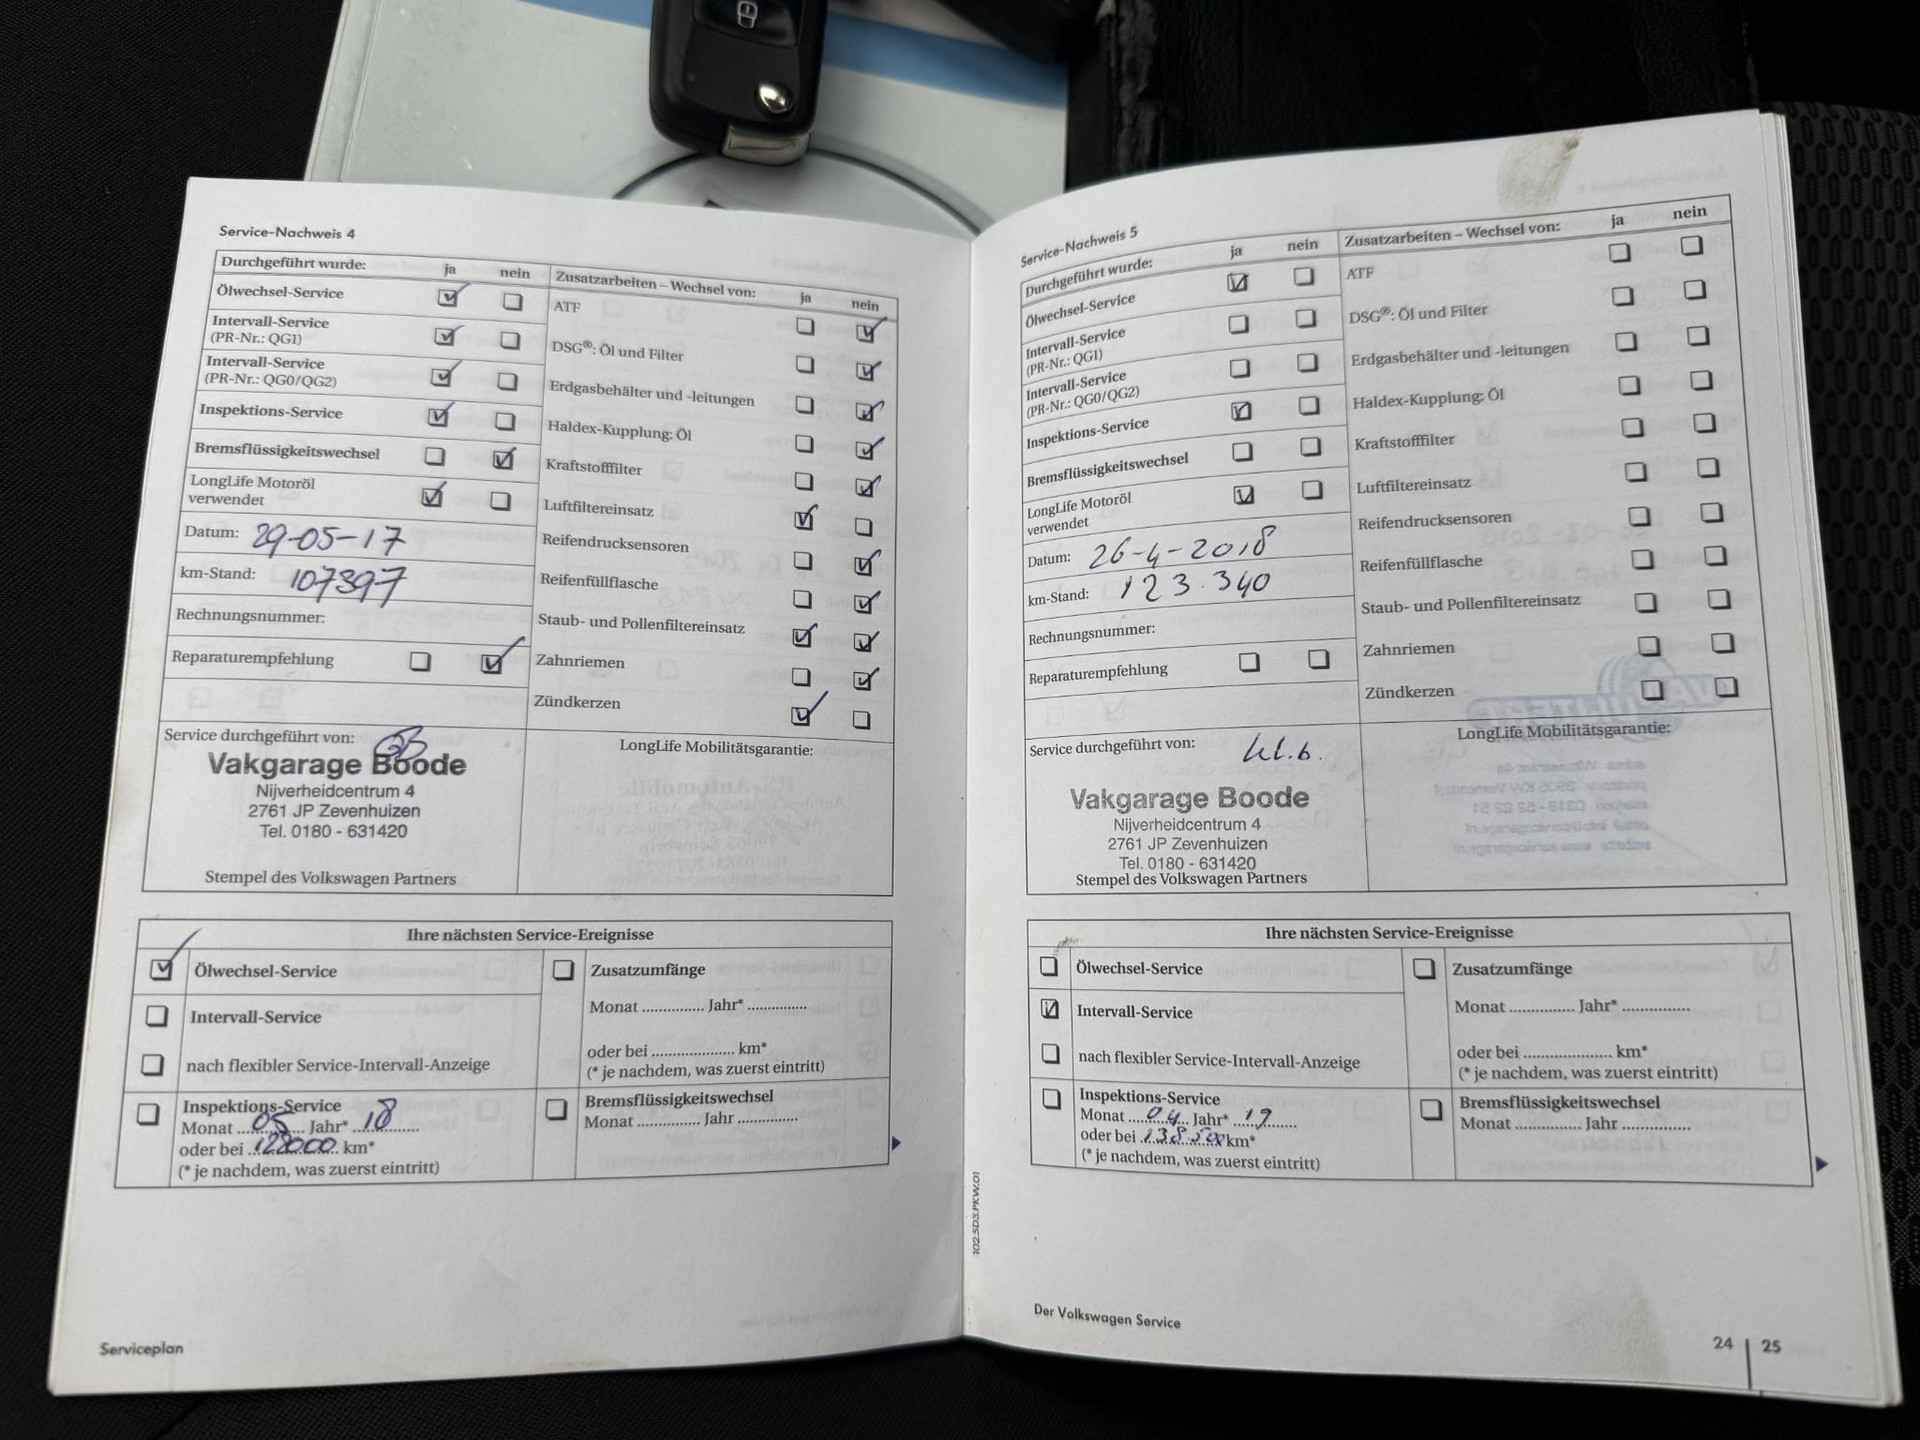 Service-Nachweis 4
Durchgeführt wurde: ja nein
Ölwechsel-Service
Intervall-Service
(PR-Nr.: QG1)
Intervall-Service
(PR-Nr.: QG0/QG2)
Inspektions-Service
Bremsflüssigkeitswechsel
LongLife Motoröl
verwendet
Datum: 29-05-17
km-Stand: 107397
Rechnungsnummer:
Reparaturempfehlung
Zusatzarbeiten – Wechsel von: ja nein
ATF
DSG®: Öl und Filter
Erdgasbehälter und -leitungen
Haldex-Kupplung: Öl
Kraftstofffilter
Luftfiltereinsatz
Reifendrucksensoren
Reifenfüllflasche
Staub- und Pollenfiltereinsatz
Zahnriemen
Zündkerzen
Service durchgeführt von:
Vakgarage Boode
Nijverheidcentrum 4
2761 JP Zevenhuizen
Tel. 0180 - 631420
Stempel des Volkswagen Partners
LongLife Mobilitätsgarantie:
Ihre nächsten Service-Ereignisse
Ölwechsel-Service
Intervall-Service
nach flexibler Service-Intervall-Anzeige
Inspektions-Service
Monat 05 Jahr* 18
oder bei 122000 km*
(* je nachdem, was zuerst eintritt)
Zusatzumfänge
Monat ............... Jahr* ..............
oder bei .................... km*
(* je nachdem, was zuerst eintritt)
Bremsflüssigkeitswechsel
Monat ............... Jahr ..............
Serviceplan
Service-Nachweis 5
Durchgeführt wurde: ja nein
Ölwechsel-Service
Intervall-Service
(PR-Nr.: QG1)
Intervall-Service
(PR-Nr.: QG0/QG2)
Inspektions-Service
Bremsflüssigkeitswechsel
LongLife Motoröl
verwendet
Datum: 26-4-2018
km-Stand: 123.340
Rechnungsnummer:
Reparaturempfehlung
Zusatzarbeiten – Wechsel von: ja nein
ATF
DSG®: Öl und Filter
Erdgasbehälter und -leitungen
Haldex-Kupplung: Öl
Kraftstofffilter
Luftfiltereinsatz
Reifendrucksensoren
Reifenfüllflasche
Staub- und Pollenfiltereinsatz
Zahnriemen
Zündkerzen
Service durchgeführt von:
Vakgarage Boode
Nijverheidcentrum 4
2761 JP Zevenhuizen
Tel. 0180 - 631420
Stempel des Volkswagen Partners
LongLife Mobilitätsgarantie:
Ihre nächsten Service-Ereignisse
Ölwechsel-Service
Intervall-Service
nach flexibler Service-Intervall-Anzeige
Inspektions-Service
Monat 04 Jahr* 19
oder bei 138.500 km*
(* je nachdem, was zuerst eintritt)
Zusatzumfänge
Monat ............... Jahr* ...............
oder bei .................... km*
(* je nachdem, was zuerst eintritt)
Bremsflüssigkeitswechsel
Monat ............... Jahr ...............
102.5D3.PKW.01
Der Volkswagen Service
24 | 25